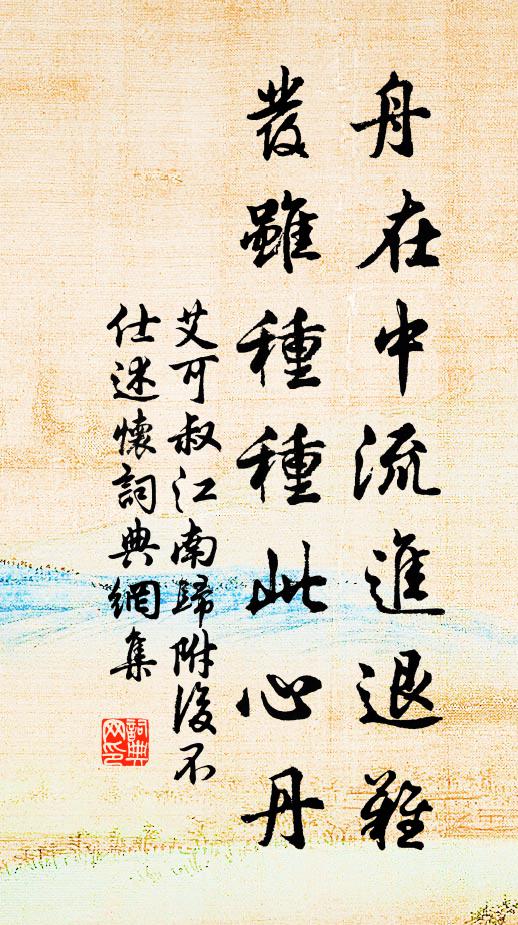 舟在中流進退難
發雖種種此心丹
艾可叔江南歸附後不
仕述懷詞典網集
詞典网印